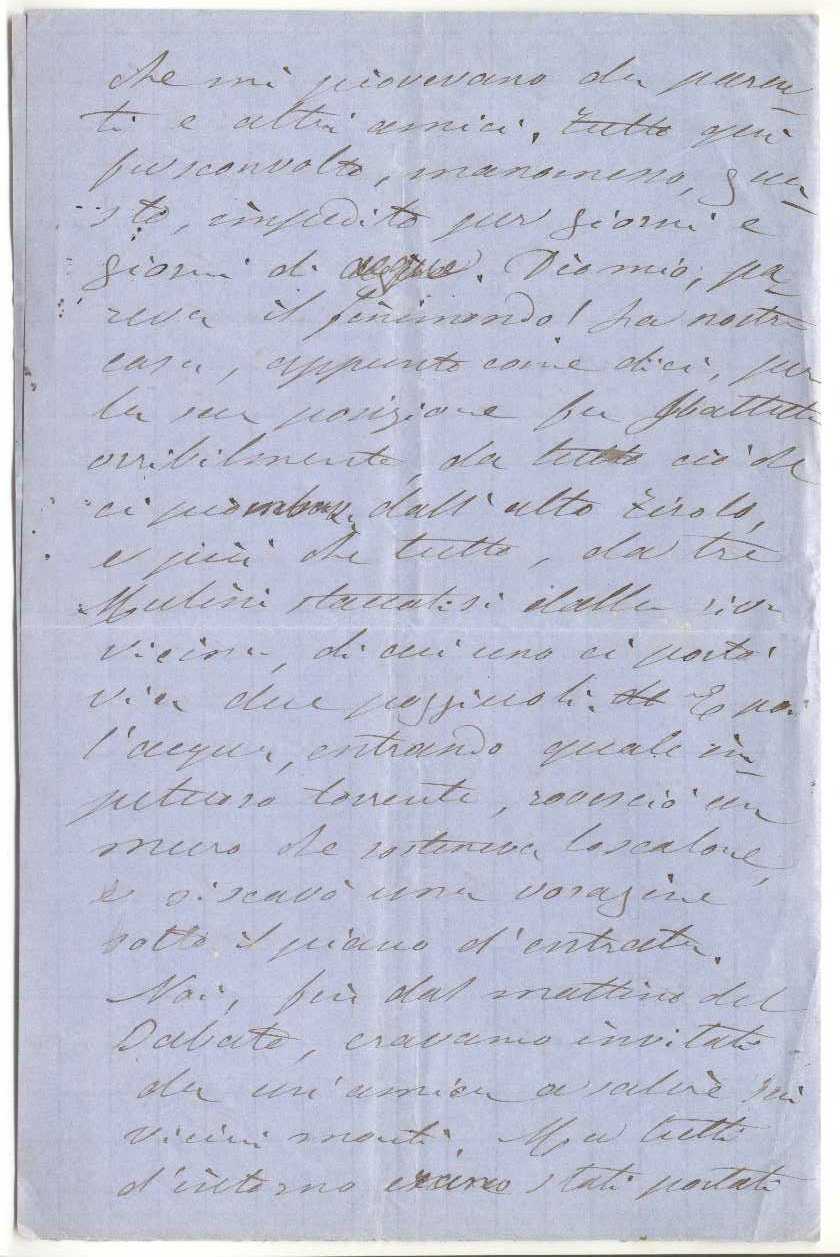 che mi piovevano da paren-
ti e altri amici. Tutto qui
fu sconvolto, manomesso, gua-
sto, impedito per giorni e
giorni di acque. Dio mio, pa-
reva il finimondo! La nostra
casa, appunto come dici, per
la sua posizione fu sbattuta
orribilmente, da tutto ciò che
ci piombava dall'alto Tirolo,
e più che tutto, da tre
Mulini staccatisi dalla riva
vicina, di cui uno ci portò
via due poggiuoli. E poi
l'acqua, entrando quale im-
petuoso torrente, rovesciò un
muro che sosteneva lo scalone,
e si scavò una voragine
sotto il piano d'entrata.
Noi, fin dal mattino del
Sabato, eravamo invitati
da un'amica a salire sui
vicini monti. Ma tutti
d'intorno erano stati portati